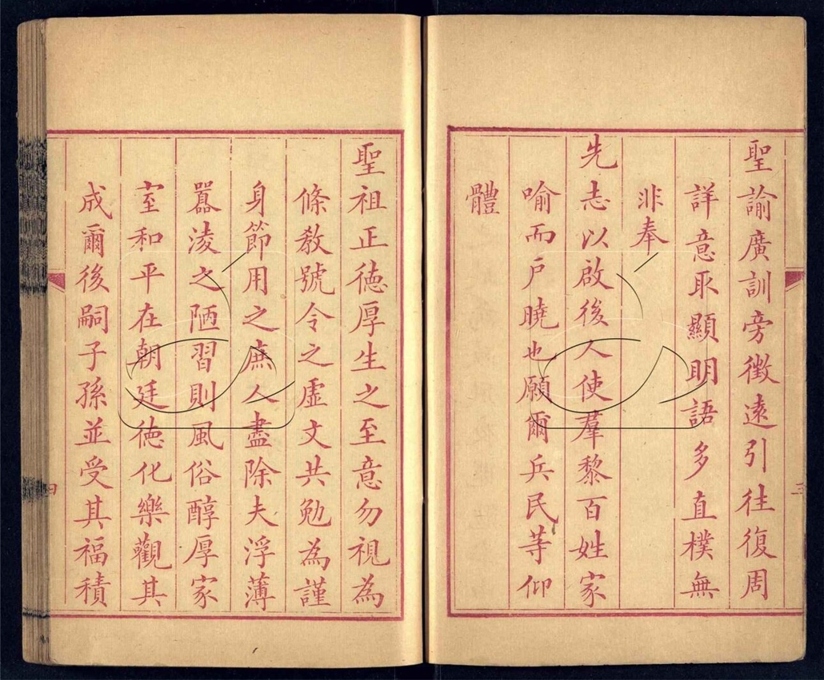 聖諭廣訓旁徵遠引往復周
詳意取顯明語多直樸無
非奉
先志以啟後人使羣黎百姓家
喻而戶曉也願爾兵民等仰
體
聖祖正徳厚生之至意勿視為
條教號令之虛文共勉為謹
身節用之庶人盡除夫浮薄
囂淩之陋習則風俗醇厚家
室和平在朝廷徳化樂觀其
成爾後嗣子孫並受其福積